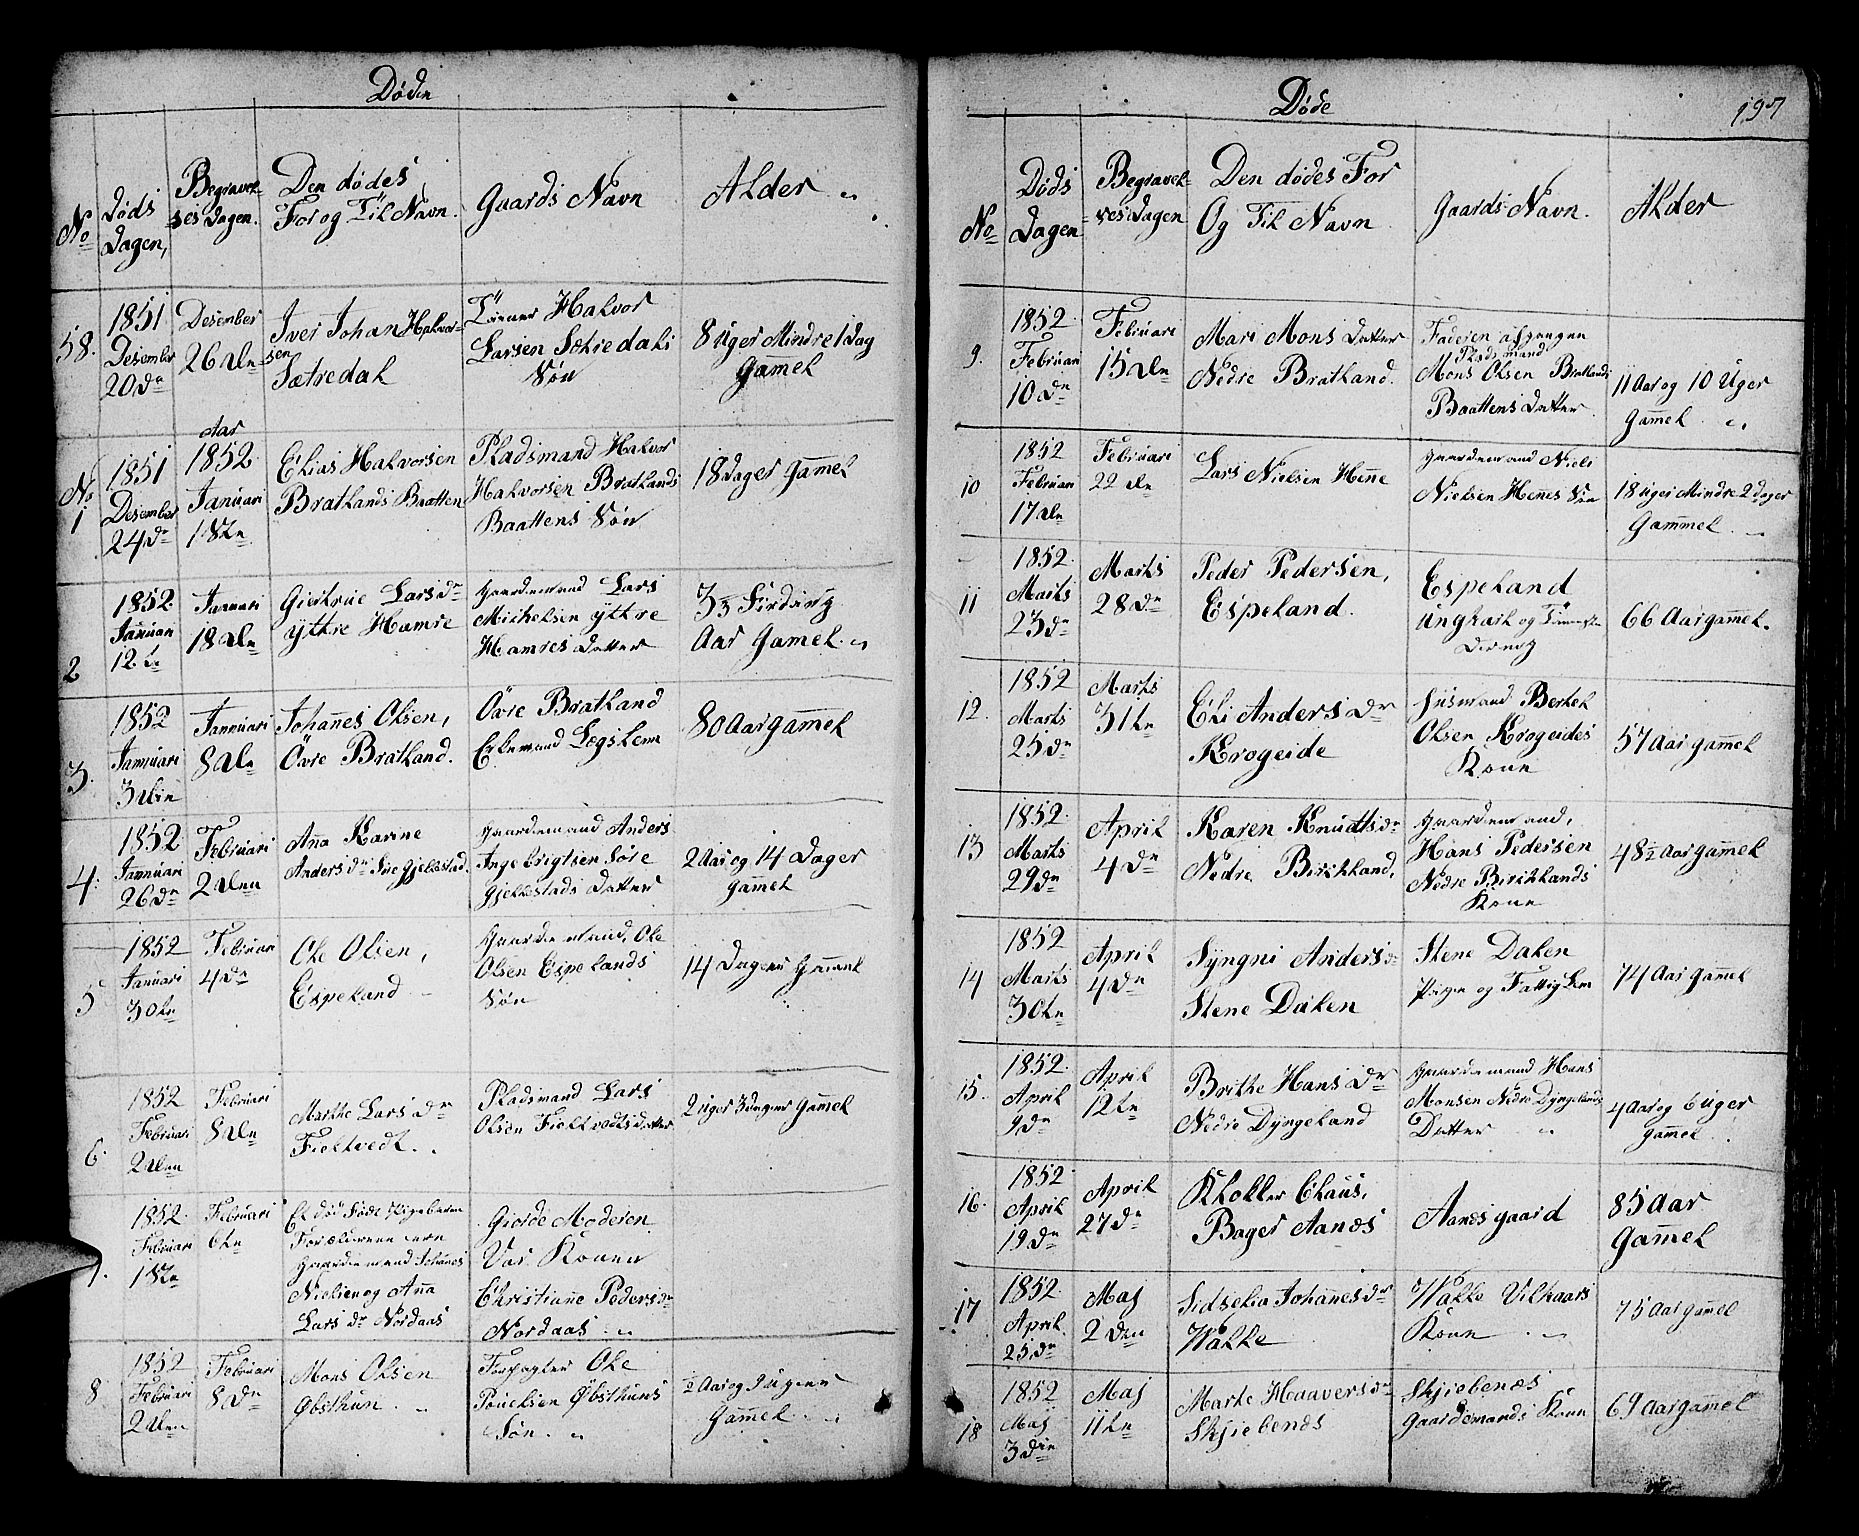 Døde
No
Døds Dagen,
Begravelsesdagen.
Den dødes For og Til Navn.
Gaards Navn
Alder
58.
1851 Desember 20de
Desember 26den
Iver Johan Halvorsen Sætredal
Halvor Larsen Sætredals Søn
8 Uger Mindre 1 Dag Gamel
Aar 1852
No 1
1851 Desember 24de
Januari 1ste
Elias Halvorsen Bratlands Baatten
Pladsmand Halvor Halvorsen Bratlands Baattens Søn
18 Dager Gamel
2
1852 Januari 12te
Januari 18den
Giertrue Larsdr Yttre Hamre
Gaardemand Lars Mickelsen Yttre Hamres Datter
Aar Gamel.
3.
1852 Januari 3die
Januari 8den
Johanes Olsen, Övre Bratland.
Övre Bratland Lægslem
80 Aar gamel
4.
1852 Januari 26de
Februari 2den
Ana Karine Andersdr Søre Gjellestad.
Gaardemand Anders Ingebrigtsen Søre Gjellestads Datter
2 Aar og 14 Dager gamel
5
1852 Januari 30te
Februari 4de
Ole Olsen, Espeland
Gaardemand, Ole Olsen Espelands Søn
14 Dager Gamel
6.
1852 Februari 2den
Februari 8den
Marthe Larsdr Fieltvedt.
Pladsmand Lars Olsen Fieltvedts datter
2 Uger 3 Dager Gamel
7.
1852 Februari 1ste
Februari 6te
Et død Født Pigebarn Forældrene ere Gaardemand Johanes Nielsen og Ana Larsdr Nordaas
Giorde Moderen Var Konen Christiane Pedersdr Nordaas
8
1852 Februari 2den
Februari 8de
Mons Olsen Øbsthun.
Forpagter Ole Povelsen Øbsthuns Søn.
1/2 Aar og Uger Gamel.
Døde
197
No
Døds Dagen
Begravelsesdagen
Den dødes For Og Til Navn
Gaards Navn.
Alder
9.
1852 Februari 10de
Februari 15den
Mari Mons Datter Nedre Bratland.
Faderen afgangen Pladsmand Mons Olsen Bratlands Baattens Datter.
11 Aar og 10 Uger Gamel.
10
1852 Februari 17den
Februari 22den
Lars Nielsen Hene
Gaardemand Niels Nielsen Henes Søn
18 Uger Mindre 2 dager Gammel
11
1852. Marts 23de
Marts 28de
Peder Pedersen, Espeland.
Espeland Ungkarl og
66 Aar gamel.
12.
1852 Marts 25de
Marts 31te
Eli Andersdr Krogeide
Husmand Berkel Olsen Krogeides Kone
57 Aar gamel
13
1852. Marts 29de
April 4de
Karen Knudtsdr Nedre Birchland,
Gaardemand, Hans Pedersen Nedre Birchlands Kone
48 1/2 Aar gamel
14
1852 Marts 30te
April 4de
Syngni Andersdr Stene Dalen
Stene Dalen Pige og Fattiglem
74 Aar gamel
15.
1852. April 9de
April 12te
Brithe Hansdr Nedre Dyngeland
Gaardemand Hans Monsen Nedre Dyngelands Datter
4 Aar og 6 Uger gamel
16.
1852. April 19de
April 27de
Klokker Claus, Bager Aanæs
Aanæs gaard
85 Aar Gamel
17
1852 April 25de
Maj 2den
Sidselia Johanesdr Wakke
Wakke Vilkaars Kone
75 Aar gamel
18
1852 Maj 3die
Maj 11te
Marte Haaversdr Skjiebenæs
Skjiebenæs Gaardemands Kone
69 Aar gamel